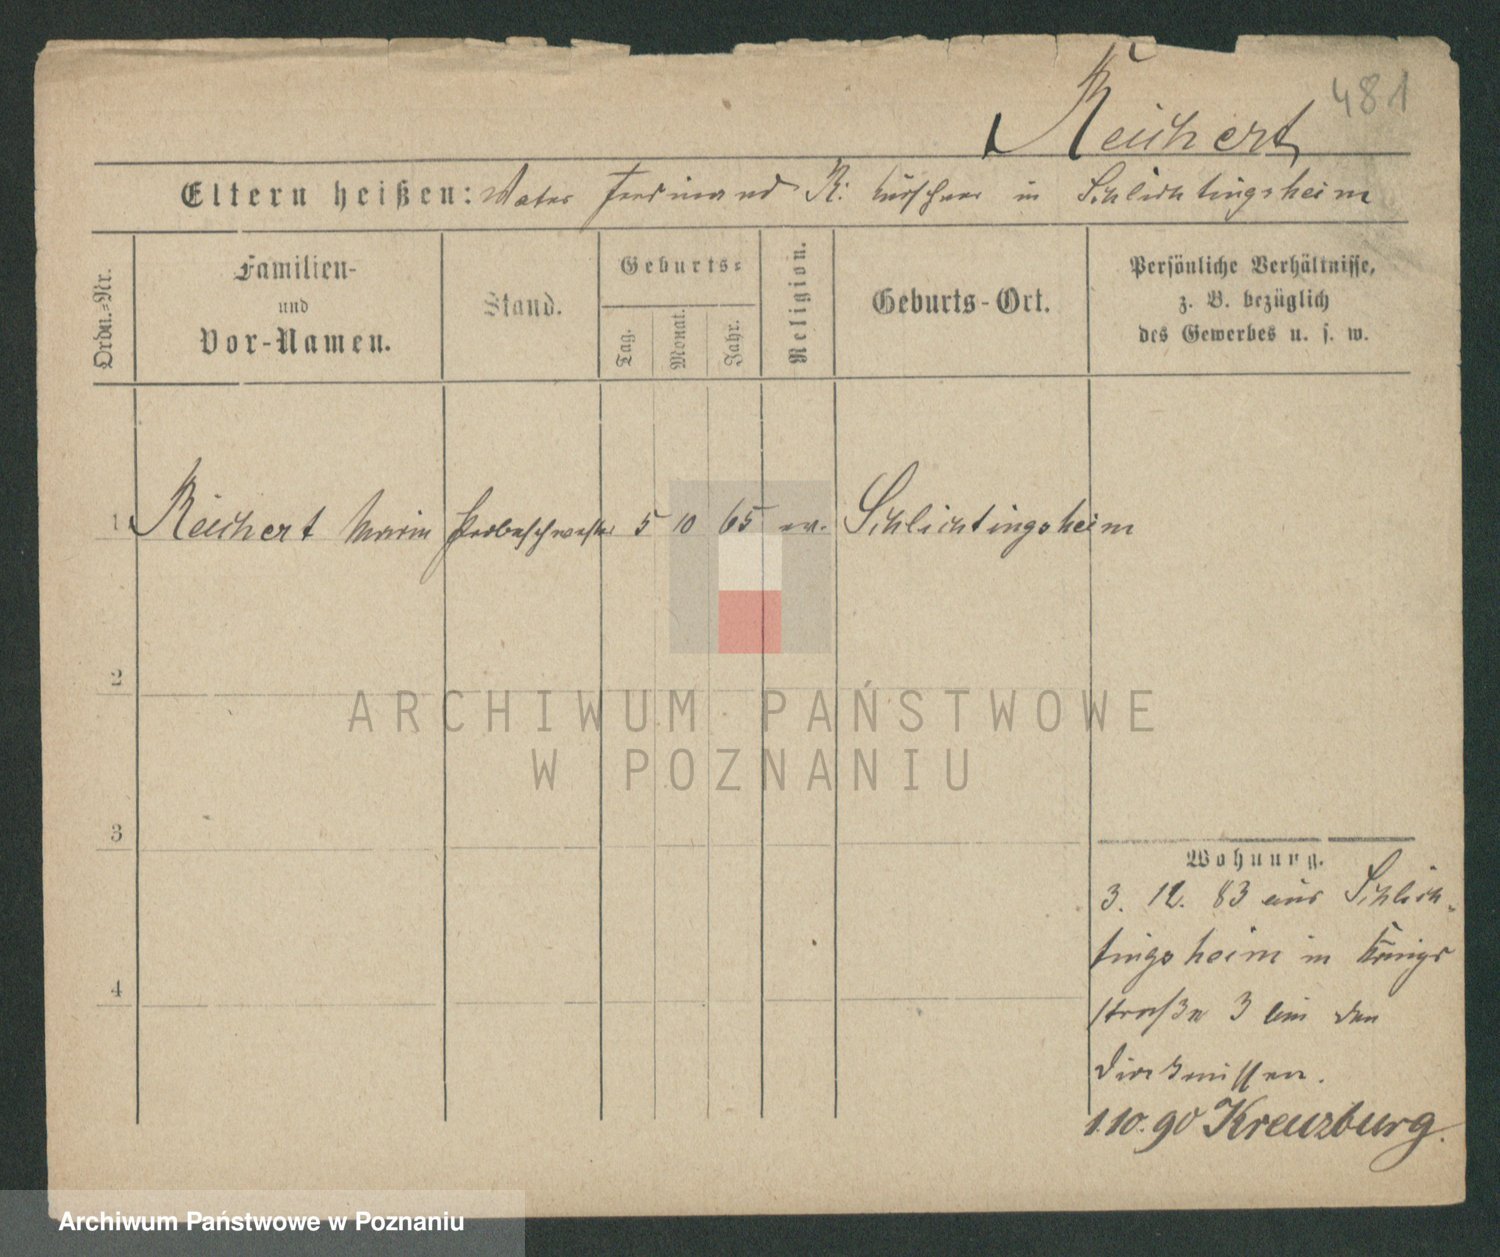 481
Reichert
Eltern heißen: Vater Ferdinand R. Kürschner in Schlichtingsheim
Ordn.-Nr.
Familien-
und
Vor-Namen.
Stand.
Geburts-
Tag.
Monat.
Jahr.
Religion.
Geburts-Ort.
Persönliche Verhältnisse,
z. B. bezüglich
des Gewerbes u. s. w.
1 Reichert Marie Probeschwester 5 10 65 ev. Schlichtingsheim
2
3
4
Wohnung.
3. 12. 83 aus Schlich-
tingsheim in Königs
straße 3 bei den
Diakonissen.
1.10.90 Kreuzburg.
ARCHIWUM PAŃSTWOWE
W POZNANIU
Archiwum Państwowe w Poznaniu